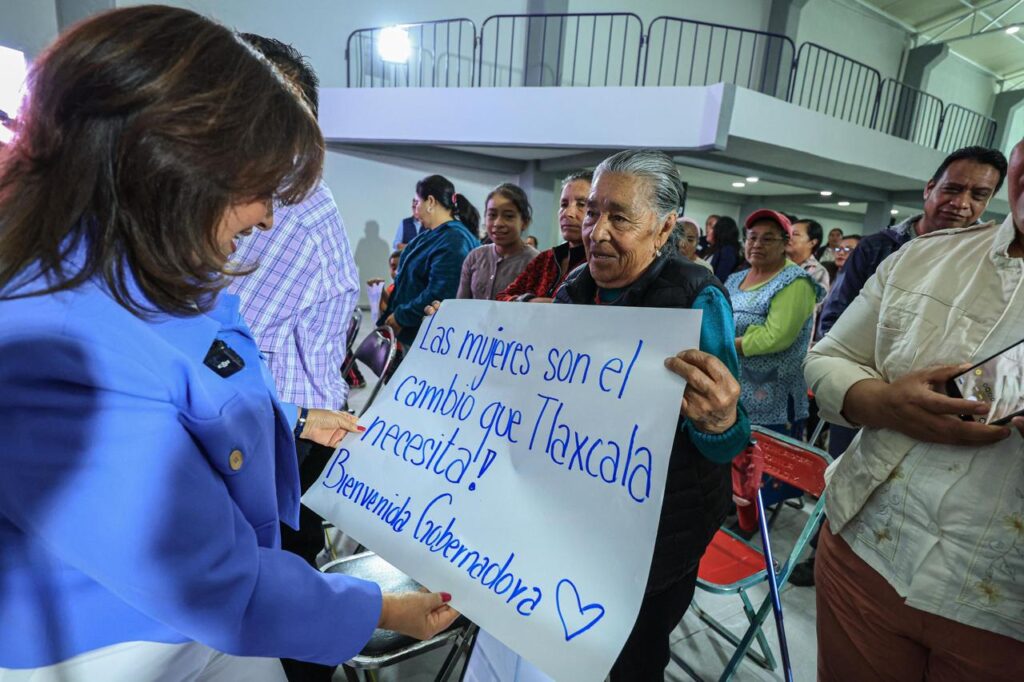 Las mujeres son el
cambio que Tlaxcala
necesita!!
Bienvenida Gobernadora